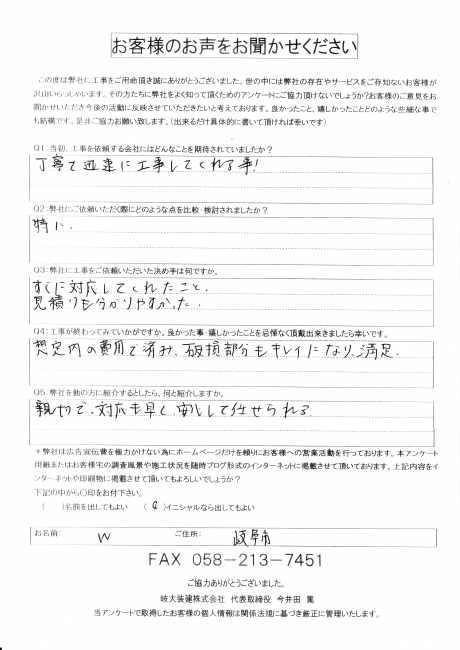 お客様のお声をお聞かせください
この度は弊社に工事をご用命頂き誠にありがとうございました。世の中には弊社の存在やサービスをご存知ないお客様が
沢山いらっしゃいます。その方たちに弊社をよく知って頂くためのアンケートにご協力頂けないでしょうか?お客様のご意見をお
聞かせいただき今後の活動に反映させていただきたいと考えております。良かったこと、嬉しかったことどのような些細な事で
も結構です。是非ご協力お願い致します。(出来るだけ具体的に書いて頂ければ幸いです)
Q1:当初、工事を依頼する会社にはどんなことを期待されていましたか?
丁寧で迅速に工事してくれる事!
Q2:弊社にご依頼いただく際にどのような点を比較・検討されましたか?
特に.
Q3:弊社に工事をご依頼いただいた決め手は何ですか。
すぐに対応してくれたこと.
見積りも分かりやすかった.
Q4:工事が終わってみていかがですか。良かった事・嬉しかったことを忌憚なく頂戴出来きましたら幸いです。
想定内の費用で済み、破損部分もキレイになり、満足.
Q5:弊社を他の方に紹介するとしたら、何と紹介しますか。
親切で、対応も早く、安心して任せられる
*弊社は広告宣伝費を極力かけない為にホームページだけを頼りにお客様への営業活動を行っております。本アンケート
用紙またはお客様宅の調査風景や施工状況を随時ブログ形式のインターネットに掲載させて頂いております。上記内容をイ
ンターネットや印刷物に掲載させて頂いてもよろしいでしょうか?
下記の中から〇印をお付下さい。
( )名前を出してもよい ( )イニシャルなら出してもよい
お名前: W ご住所: 岐阜市
FAX 058-213-7451
ご協力ありがとうございました。
岐大装建株式会社 代表取締役 今井田 篤
当アンケートで取得したお客様の個人情報は関係法規に基づき厳正に管理いたします。